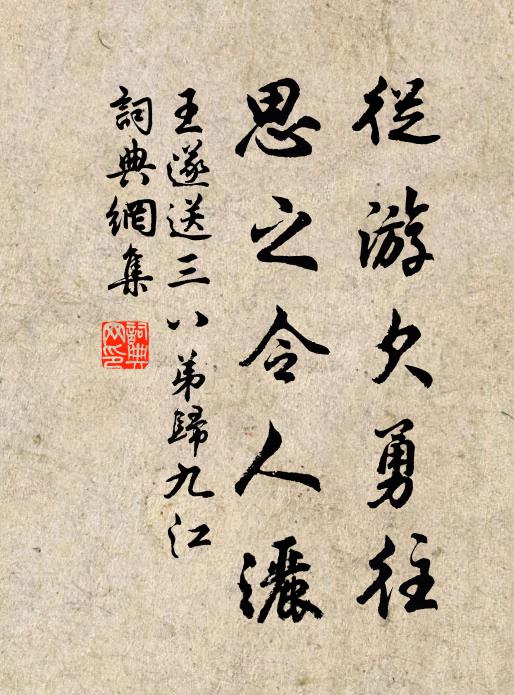 從游欠勇往
思之令人灑
王遂送三八弟歸九江
詞典網集
詞典網印